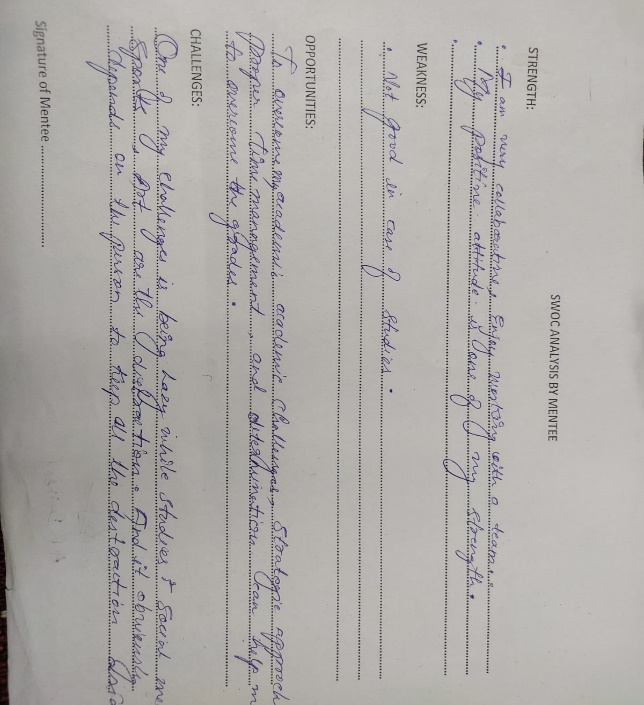 SWOC ANALYSIS BY MENTEE
STRENGTH:
• I am very collaborative, Enjoy working with a team.
• My positive attitude is one of my strength.
WEAKNESS:
• Not good in case of studies.
OPPORTUNITIES:
To overcome my academic academic challenges, Strategic approach
proper time management, and determination can help m
to overcome the grades.
CHALLENGES:
One of my challenges is being Lazy while studies & Social me
Sports, are the distraction. And it obviously
depends on the person to keep all the destraction
Signature of Mentee